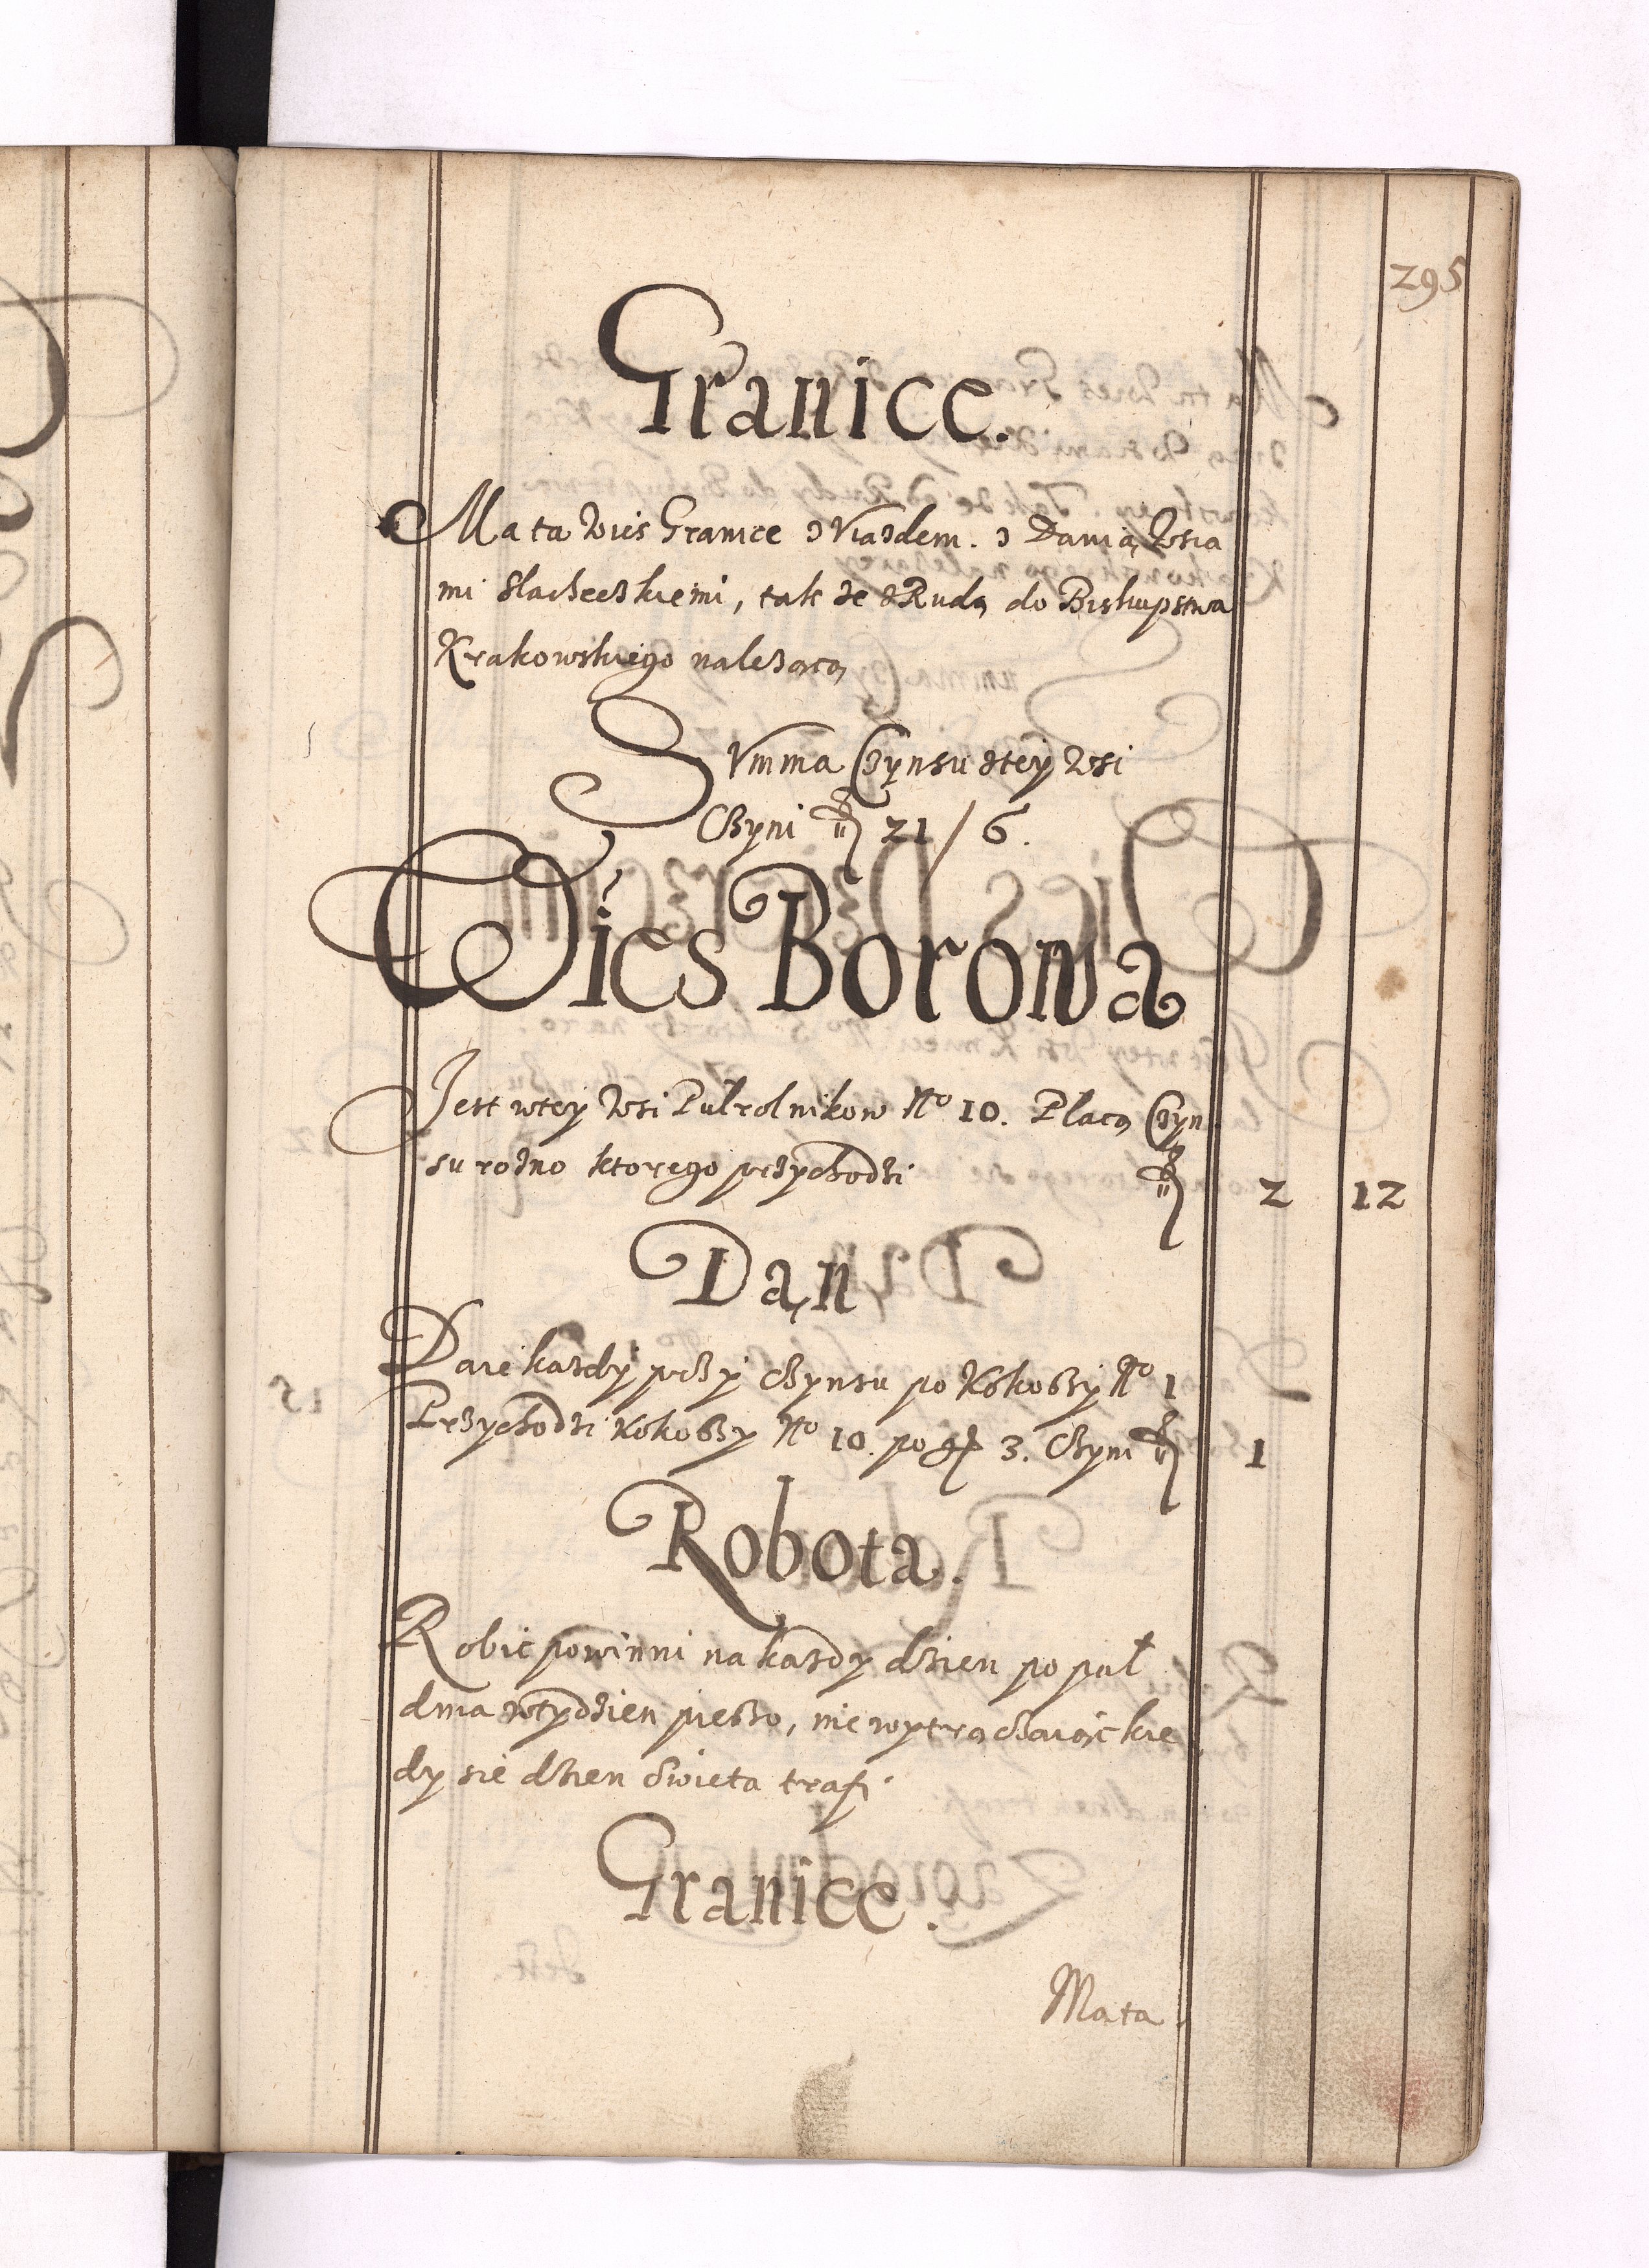 295
Granice.
Ma ta Wies Granice z Viazdem. z Danią Wsia
mi Slacheckiemi, takze z Rudą do Biskupstwa
Krakowskiego nalezącą
SVmma Czynsu ztey Wsi
Czyni fl 21/6.
Wies Borowa
Jest wtey Wsi Pulrolnikow No 10. Placą Czyn
su rozno ktorego przychodzi fl 2 12
Dań
Daie kazdy przy Czynsu po Kokoszy No 1
Przychodzi Kokoszy No 10. po gr 3. Czyni fl 1
Robota.
Robić powinni na kazdy dzien po puł
dnia wtydzien pieszo, nie wytrączaiąc kie
dy sie dzien Swieta trafi
Granice.
Ma ta